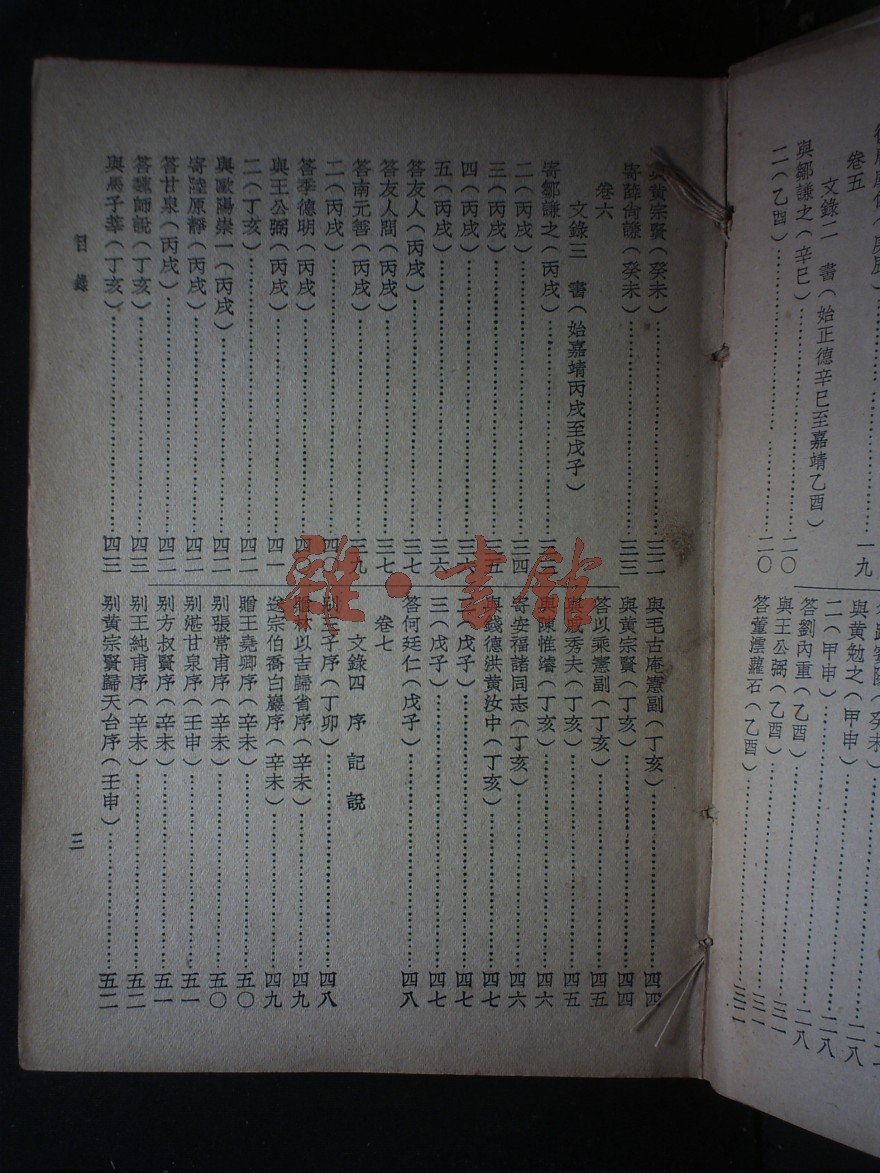 卷五
文錄二 書(始正德辛巳至嘉靖乙酉)……一九
與鄒謙之(辛巳)……二〇
二(乙酉)……二〇
與黃勉之(甲申)……二八
二(甲申)……二八
答劉內重(乙酉)……二八
與王公弼(乙酉)……三一
答董澐蘿石(乙酉)……三一
與黃宗賢(癸未)……三二
寄薛尚謙(癸未)……三三
卷六
文錄三 書(始嘉靖丙戌至戊子)
寄鄒謙之(丙戌)……三三
二(丙戌)……三四
三(丙戌)……三五
四(丙戌)……三六
五(丙戌)……三六
答友人(丙戌)……三七
答友人問(丙戌)……三七
答南元善(丙戌)……三九
二(丙戌)……四〇
答季德明(丙戌)……四〇
與王公弼(丙戌)……四一
二(丁亥)……四二
與歐陽崇一(丙戌)……四二
寄陸原靜(丙戌)……四二
答甘泉(丙戌)……四二
答魏師說(丁亥)……四三
與馬子莘(丁亥)……四三
與毛古庵憲副(丁亥)……四四
與黃宗賢(丁亥)……四四
答以乘憲副(丁亥)……四五
與戚秀夫(丁亥)……四五
與陳惟濬(丁亥)……四六
寄安福諸同志(丁亥)……四六
與錢德洪黃汝中(丁亥)……四七
二(戊子)……四七
三(戊子)……四七
答何廷仁(戊子)……四八
卷七
文錄四 序 記 說
別三子序(丁卯)……四八
贈林以吉歸省序(辛未)……四九
送宗伯喬白巖序(辛未)……四九
贈王堯卿序(辛未)……五〇
別張常甫序(辛未)……五〇
別湛甘泉序(壬申)……五一
別方叔賢序(辛未)……五一
別王純甫序(辛未)……五二
別黃宗賢歸天台序(壬申)……五二
目錄
三
雜·書館